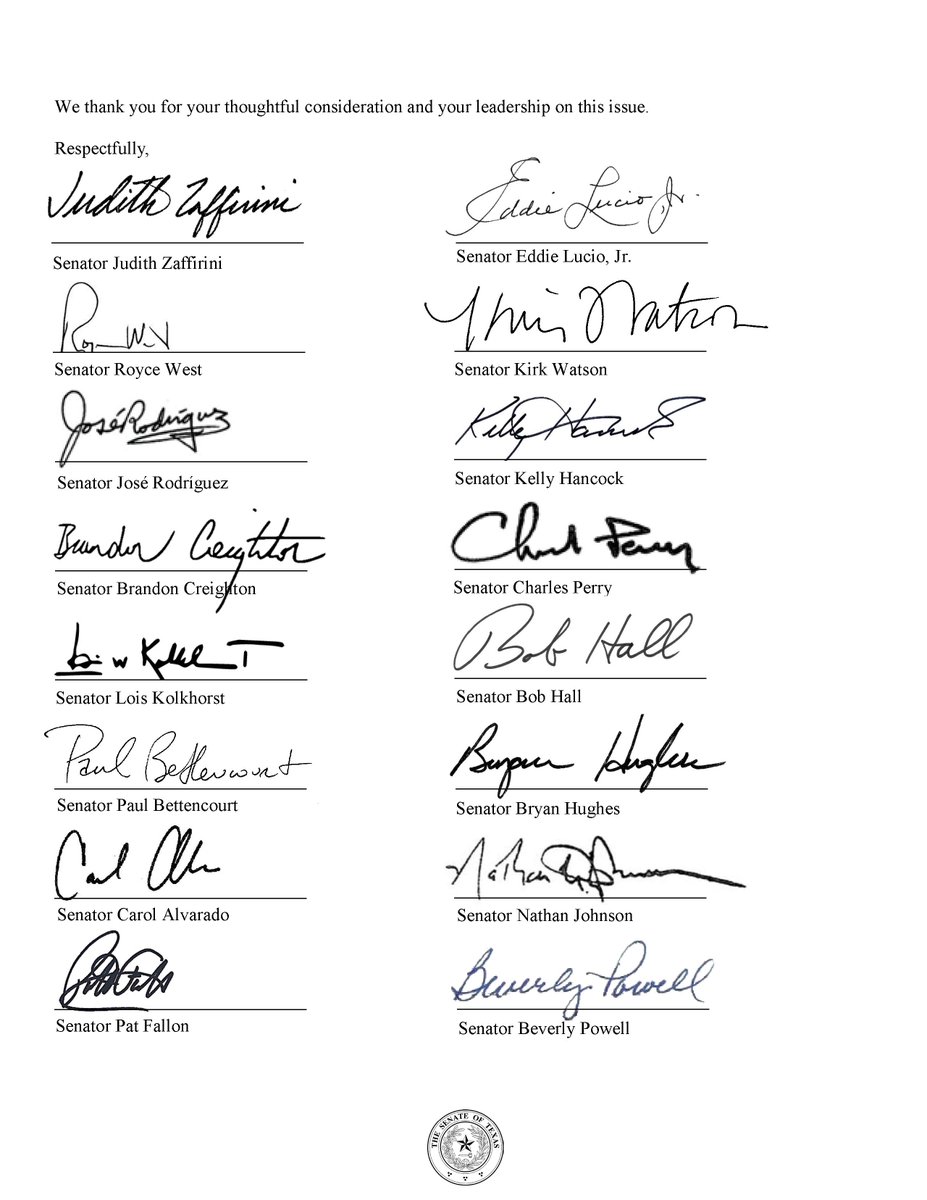 We thank you for your thoughtful consideration and your leadership on this issue.
Respectfully,
Judith Zaffirini
Eddie Lucio, Jr.
Senator Judith Zaffirini
Senator Eddie Lucio, Jr.
Watson
Senator Royce West
Senator Kirk Watson
José Rodríguez
Kelly Hancock
Senator José Rodríguez
Senator Kelly Hancock
Brandon Creighton
Charles Perry
Senator Brandon Creighton
Senator Charles Perry
Bob Hall
Senator Lois Kolkhorst
Senator Bob Hall
Paul Bettencourt
Bryan Hughes
Senator Paul Bettencourt
Senator Bryan Hughes
Nathan Johnson
Senator Carol Alvarado
Senator Nathan Johnson
Beverly Powell
Senator Pat Fallon
Senator Beverly Powell
THE SENATE OF TEXAS